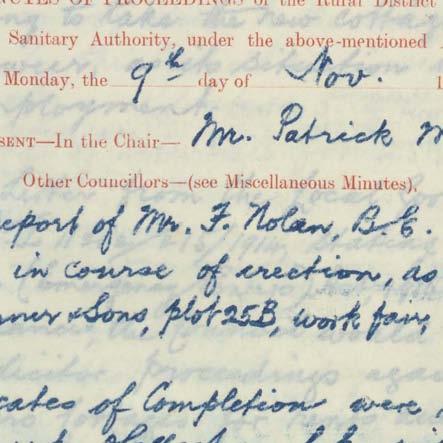 NUTES OF PROCEEDINGS of the Rural District
Sanitary Authority, under the above-mentioned
Monday, the 9th day of Nov. 1
SENT—In the Chair— Mr. Patrick M
Other Councillors—(see Miscellaneous Minutes).
eport of Mr. F. Nolan, B.E.
in course of erection, as
nner & Sons, plot 25B, work fair,
cates of Completion were